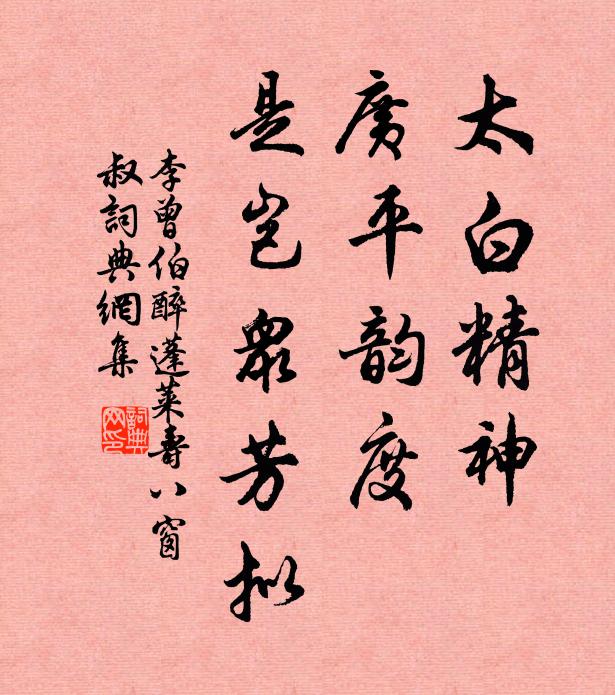 太白精神
廣平韵度
是豈眾芳拟
李曾伯醉蓬萊壽八窗
叔詞典網集
詞典
网印